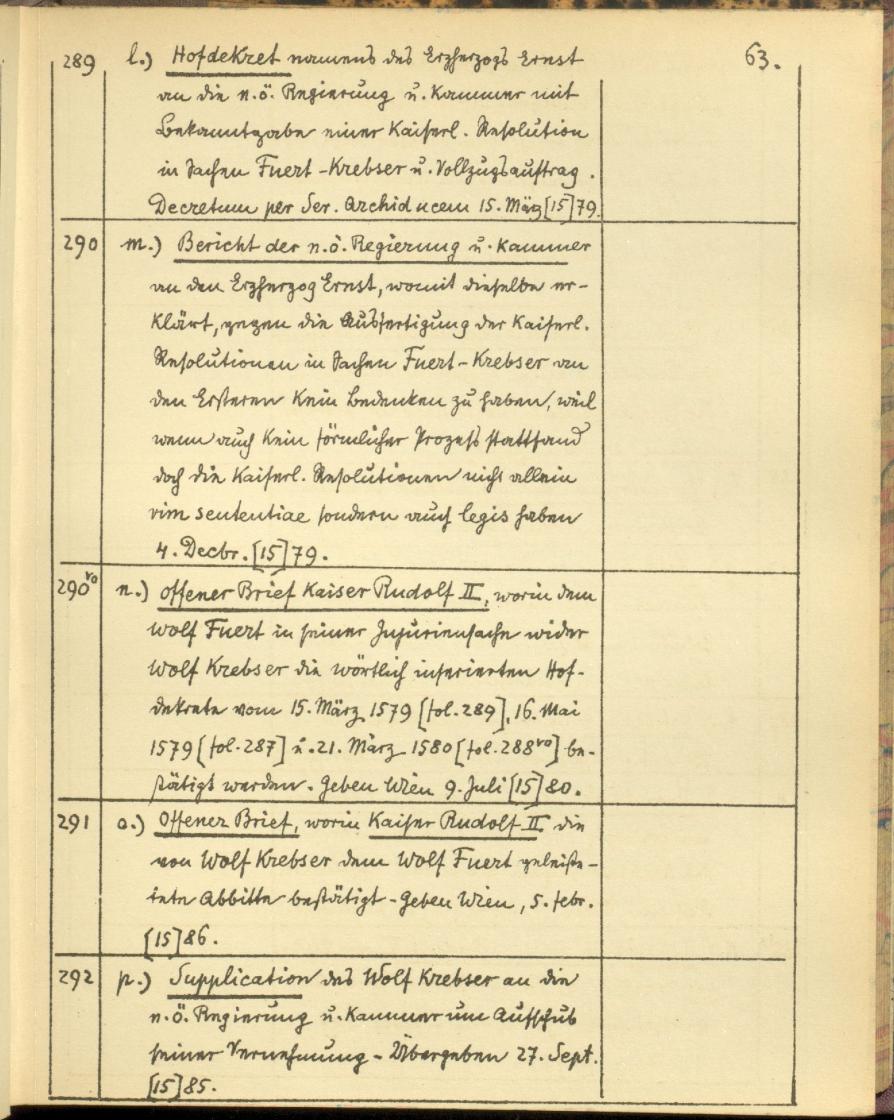 63.
289 l.) Hofdekret namens des Erzherzogs Ernst
an die n.ö. Regierung u. Kammer mit
Bekanntgabe einer Kaiserl. Resolution
in Sachen Fuert-Krebser u. Vollzugsauftrag.
Decretum per Ser. Archiducem 15. März [15]79.
290 m.) Bericht der n.ö. Regierung u. Kammer
an den Erzherzog Ernst, womit dieselbe er-
klärt, gegen die Ausfertigung der Kaiserl.
Resolutionen in Sachen Fuert-Krebser an
den Ersteren kein Bedenken zu haben, weil
wenn auch kein förmlicher Prozess stattfand
doch die Kaiserl. Resolutionen nicht allein
vim sententiae sondern auch legis haben
4. Decbr. [15]79.
290vo n.) offener Brief Kaiser Rudolf II, worin dem
Wolf Fuert in seiner Injuriensache wider
Wolf Krebser die wörtlich inserierten Hof-
dekrete vom 15. März 1579 [fol. 289], 16. Mai
1579 [fol. 287] u. 21. März 1580 [fol. 288vo] be-
stätigt werden. Geben Wien 9. Juli [15]80.
291 o.) Offener Brief, worin Kaiser Rudolf II die
von Wolf Krebser dem Wolf Fuert geleis-
tete Abbitte bestätigt - Geben Wien, 5. febr.
[15]86.
292 p.) Supplication des Wolf Krebser an die
n.ö. Regierung u. Kammer um Aufschub
seiner Vernehmung - Übergeben 27. Sept.
[15]85.